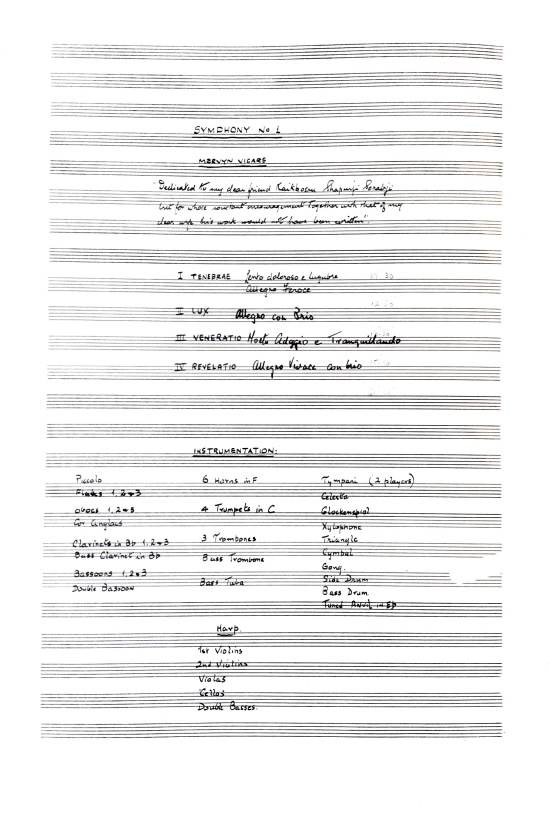 SYMPHONY No 1
MERVYN VICARS
"Dedicated to my dear friend Kaikhosru Shapurji Sorabji
but for whose constant encouragement together with that of my
dear wife this work would not have been written".
I TENEBRAE Lento doloroso e lugubre
Allegro Feroce
II LUX Allegro con Brio
III VENERATIO Molto Adagio e Tranquillando
IV REVELATIO Allegro Vivace con brio
INSTRUMENTATION:
Piccolo
Flutes 1, 2 & 3
Oboes 1, 2 & 3
Cor Anglais
Clarinets in Bb 1, 2 & 3
Bass Clarinet in Bb
Bassoons 1, 2 & 3
Double Bassoon
6 Horns in F
4 Trumpets in C
3 Trombones
Bass Trombone
Bass Tuba
Tympani (2 players)
Celesta
Glockenspiel
Xylophone
Triangle
Cymbal
Gong.
Side Drum
Bass Drum
Tuned Anvil in Eb
Harp.
1st Violins
2nd Violins
Violas
Cellos
Double Basses.